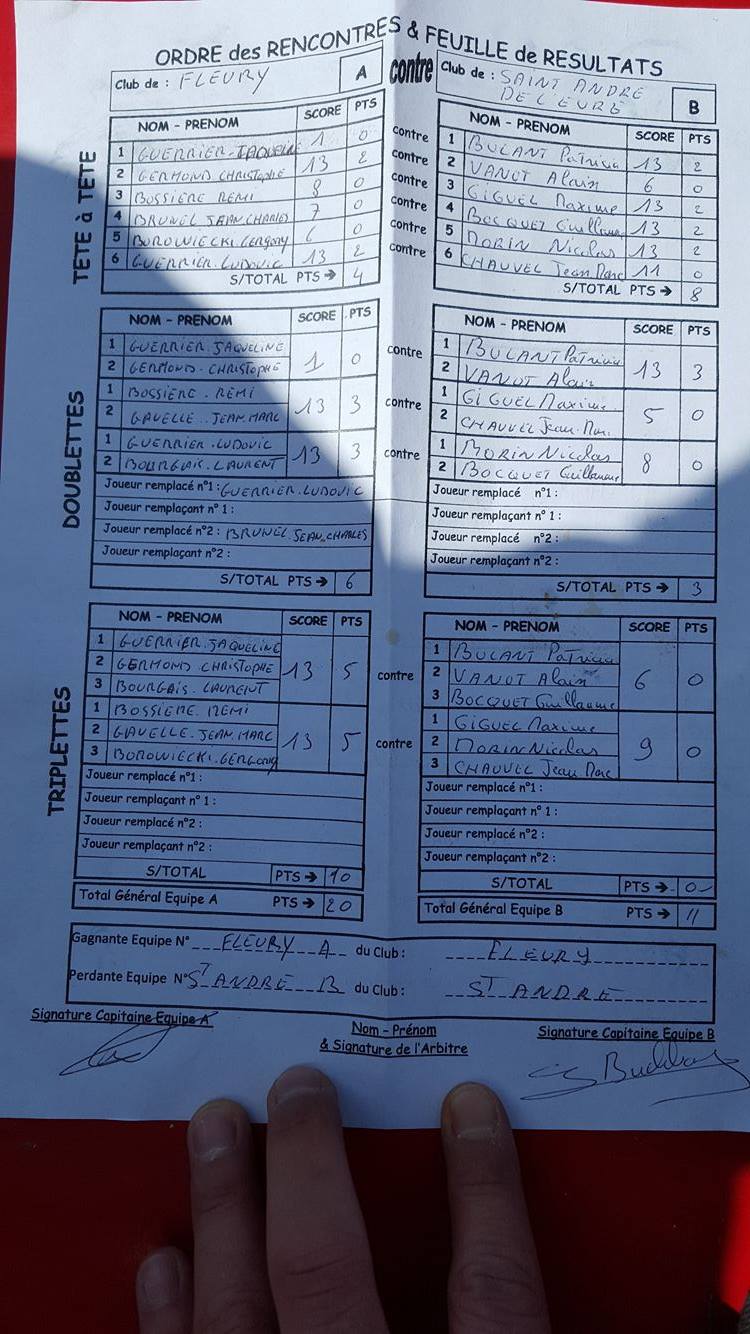 ORDRE des RENCONTRES & FEUILLE de RESULTATS
Club de : FLEURY A contre Club de : SAINT ANDRE DE L'EURE B
TETE à TETE
NOM - PRENOM SCORE PTS
1 GUERRIER-JAQUELINE 1 0
2 GERMOND CHRISTOPHE 13 2
3 BOSSIERE REMI 8 0
4 BRUNEL JEAN CHARLES 7 0
5 BOROWIECKI.GERGORY 6 0
6 GUERRIER.LUDOVIC 13 2
S/TOTAL PTS → 4
contre
contre
contre
contre
contre
contre
NOM - PRENOM SCORE PTS
1 BULANT Patricia 13 2
2 VANOT Alain 6 0
3 GIGUEL Maxime 13 2
4 BOCQUET Guillaume 13 2
5 MORIN Nicolas 13 2
6 CHAUVEL Jean Marc 11 0
S/TOTAL PTS → 8
DOUBLETTES
NOM - PRENOM SCORE PTS
1 GUERRIER.JAQUELINE
2 GERMOND.CHRISTOPHE 1 0
1 BOSSIERE.REMI
2 GAVELLE.JEAN.MARC 13 3
1 GUERRIER.LUDOVIC
2 BOURGAIS.LAURENT 13 3
Joueur remplacé n°1 : GUERRIER.LUDOVIC
Joueur remplaçant n° 1 :
Joueur remplacé n°2 : BRUNEL.JEAN.CHARLES
Joueur remplaçant n°2 :
S/TOTAL PTS → 6
contre
contre
contre
NOM - PRENOM SCORE PTS
1 BULANT Patricia
2 VANOT Alain 13 3
1 GIGUEL Maxime
2 CHAUVEL Jean.Marc 5 0
1 MORIN Nicolas
2 BOCQUET Guillaume 8 0
Joueur remplacé n°1 :
Joueur remplaçant n° 1 :
Joueur remplacé n°2 :
Joueur remplaçant n°2 :
S/TOTAL PTS → 3
TRIPLETTES
NOM - PRENOM SCORE PTS
1 GUERRIER.JAQUELINE
2 GERMOND CHRISTOPHE 13 5
3 BOURGAIS.LAURENT
1 BOSSIERE.REMI
2 GAVELLE.JEAN.MARC 13 5
3 BOROWIECKI.GERGORY
Joueur remplacé n°1 :
Joueur remplaçant n° 1 :
Joueur remplacé n°2 :
Joueur remplaçant n°2 :
S/TOTAL PTS → 10
Total Général Equipe A PTS → 20
contre
contre
NOM - PRENOM SCORE PTS
1 BULANT Patricia
2 VANOT Alain 6 0
3 BOCQUET Guillaume
1 GIGUEL Maxime
2 MORIN Nicolas 9 0
3 CHAUVEL Jean Marc
Joueur remplacé n°1 :
Joueur remplaçant n° 1 :
Joueur remplacé n°2 :
Joueur remplaçant n°2 :
S/TOTAL PTS → 0
Total Général Equipe B PTS → 11
Gagnante Equipe N° FLEURY A du Club : FLEURY
Perdante Equipe N° ST ANDRE B du Club : ST ANDRE
Signature Capitaine Equipe A
Nom - Prénom
& Signature de l'Arbitre
Signature Capitaine Equipe B